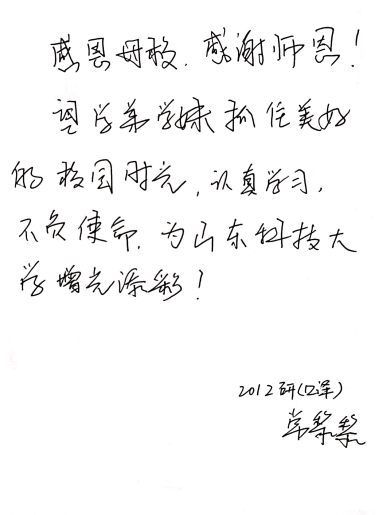 感恩母校,感谢师恩!
望学弟学妹抓住美好
的校园时光,认真学习,
不负使命,为山东科技大
学增光添彩!
2012研(口译)
常